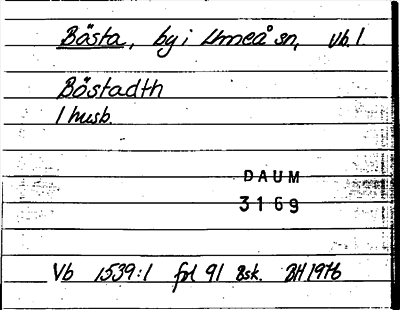 Bösta, by i Umeå sn, Vb.l
Böstadth
1 husb.
DAUM
3169
Vb 1539:1 fol 91 Bsk. BH 1976